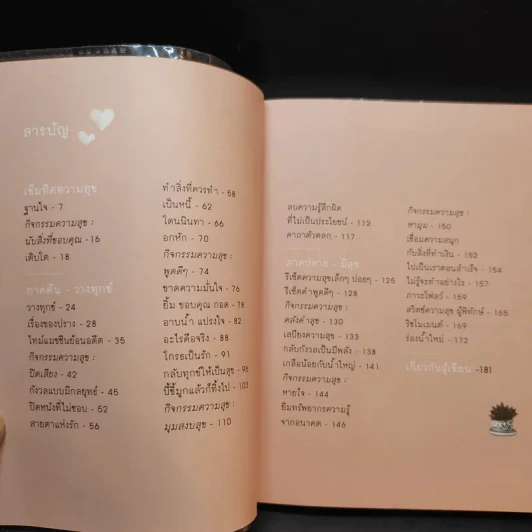 สารบัญ
เข็มทิศความสุข
ฐานใจ - 7
กิจกรรมความสุข :
นับสิ่งที่ขอบคุณ - 16
เติบโต - 18
ภาคต้น - วางทุกข์
วางทุกข์ - 24
เรื่องของปราง - 28
ไทม์แมชชีนย้อนอดีต - 35
กิจกรรมความสุข :
ปิดเสียง - 42
กังวลแบบมีกลยุทธ์ - 45
ปิดหนังที่ไม่ชอบ - 52
สายตาแห่งรัก - 56
ทำสิ่งที่ควรทำ - 58
เป็นหนี้ - 62
โดนนินทา - 66
อกหัก - 70
กิจกรรมความสุข :
พูดดีๆ - 74
ขาดความมั่นใจ - 76
ยิ้ม ขอบคุณ กอด - 78
อาบน้ำ แปรงใจ - 82
อะไรคือจริง - 88
โกรธเป็นรัก - 91
กลับทุกข์ให้เป็นสุข - 96
บี้ขี้มูกแล้วก็ทิ้งไป - 103
กิจกรรมความสุข :
มุมสงบสุข - 110
ลบความรู้สึกผิด
ที่ไม่เป็นประโยชน์ - 112
คาถาตัวตลก - 117
ภาคปลาย - มีสุข
รีเซ็ตความสุขเล็กๆ บ่อยๆ - 125
รีเซ็ตคำพูดดีๆ - 128
กิจกรรมความสุข :
คลังคำสุข - 130
เสบียงความสุข - 133
กลับกังวลเป็นมีพลัง - 138
เกลือน้อยกับน้ำใหญ่ - 141
กิจกรรมความสุข :
หายใจ - 144
ยืมทรัพยากรความรู้
จากอนาคต - 146
กิจกรรมความสุข :
หามุม - 150
เชื่อมความสนุก
กับสิ่งที่ทำเงิน - 152
ไปเป็นเราตอนสำเร็จ - 154
ไม่รู้จะทำอย่างไร - 157
ภาวะโฟลว์ - 159
สวิตช์ความสุข ผู้พิทักษ์ - 165
วิชโมเมนต์ - 169
ร่องน้ำใหม่ - 172
เกี่ยวกับผู้เขียน - 181